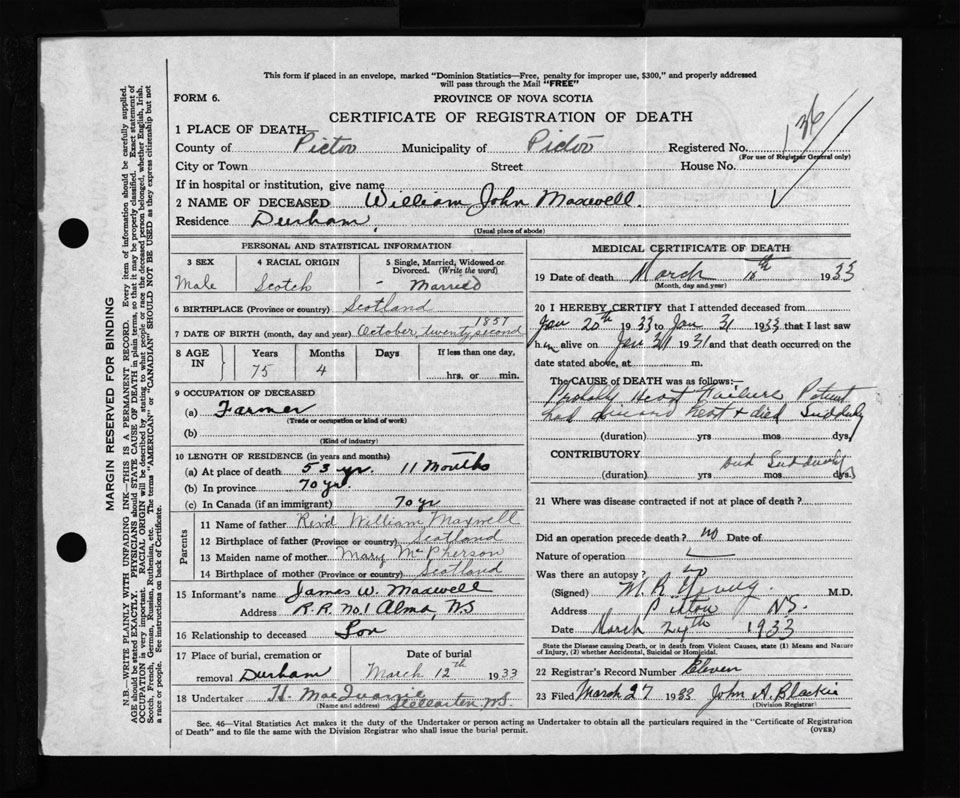 This form if placed in an envelope, marked "Dominion Statistics—Free, penalty for improper use, $300," and properly addressed
will pass through the Mail "FREE"
FORM 6.
PROVINCE OF NOVA SCOTIA
CERTIFICATE OF REGISTRATION OF DEATH
1 PLACE OF DEATH
County of Pictou Municipality of Pictou Registered No. 136
(For use of Registrar General only)
City or Town Street House No.
If in hospital or institution, give name
2 NAME OF DECEASED William John Maxwell.
Residence Durham,
(Usual place of abode)
PERSONAL AND STATISTICAL INFORMATION
3 SEX 4 RACIAL ORIGIN 5 Single, Married, Widowed or
Divorced. (Write the word)
Male Scotch - Married
6 BIRTHPLACE (Province or country) Scotland
7 DATE OF BIRTH (month, day and year) October, twenty second 1857
8 AGE IN Years Months Days If less than one day,
75 4 hrs. or min.
9 OCCUPATION OF DECEASED
(a) Farmer
(Trade or occupation or kind of work)
(b)
(Kind of industry)
10 LENGTH OF RESIDENCE (in years and months)
(a) At place of death 53 yr. 11 Months
(b) In province 70 yr.
(c) In Canada (if an immigrant) 70 yr
Parents
11 Name of father Rev'd William Maxwell
12 Birthplace of father (Province or country) Scotland
13 Maiden name of mother Mary McPherson
14 Birthplace of mother (Province or country) Scotland
15 Informant's name James W. Maxwell
Address R.R. No. 1 Alma, N.S
16 Relationship to deceased Son
17 Place of burial, cremation or Date of burial
removal Durham March 12th 1933
18 Undertaker H. MacQuarrie
(Name and address) Stellarton N.S.
MEDICAL CERTIFICATE OF DEATH
19 Date of death March 10th 1933
(Month, day and year)
20 I HEREBY CERTIFY that I attended deceased from
Jan 20th 1933 to Jan 31 1933 that I last saw
him alive on Jan 31 1931 and that death occurred on the
date stated above, at m.
The CAUSE OF DEATH was as follows:—
Probably Heart Failure Patient
had heart & died suddenly
(duration) yrs mos dys.
CONTRIBUTORY died suddenly
(duration) yrs mos dys.
21 Where was disease contracted if not at place of death?
Did an operation precede death? no Date of
Nature of operation
Was there an autopsy? no
(Signed) M. R. Young M.D.
Address Pictou N.S.
Date March 24th 1933
State the Disease causing Death, or in death from Violent Causes, state (1) Means and Nature
of Injury, (2) whether Accidental, Suicidal or Homicidal.
22 Registrar's Record Number Eleven
23 Filed March 27 1933 John A. Blaikie
(Division Registrar)
Sec. 46—Vital Statistics Act makes it the duty of the Undertaker or person acting as Undertaker to obtain all the particulars required in the "Certificate of Registration
of Death" and to file the same with the Division Registrar who shall issue the burial permit. (OVER)
MARGIN RESERVED FOR BINDING
N.B.—WRITE PLAINLY WITH UNFADING INK—THIS IS A PERMANENT RECORD. Every item of information should be carefully supplied.
AGE should be stated EXACTLY. PHYSICIANS should STATE CAUSE OF DEATH in plain terms, so that it may be properly classified. Exact statement of
OCCUPATION is very important. RACIAL ORIGIN will be described by stating to what people or race the deceased person belonged, whether English, Irish,
Scotch, French, German, Russian, Ruthenian, etc. The terms "AMERICAN" or "CANADIAN" SHOULD NOT BE USED as they express citizenship but not
a race or people. See instructions on back of Certificate.